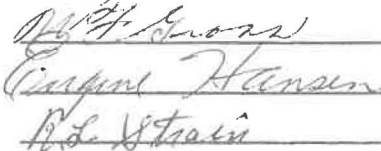 Gross
Eugene Hansen
R.L. Strain